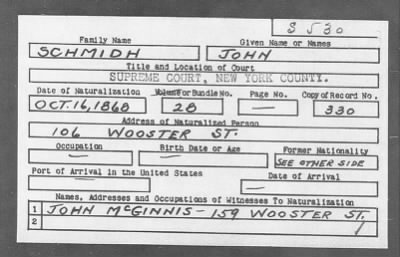 S 530
Family Name Given Name or Names
SCHMIDH JOHN
Title and Location of Court
SUPREME COURT, NEW YORK COUNTY.
Date of Naturalization Volume or Bundle No. Page No. Copy of Record No.
OCT. 16, 1868 28 — 330
Address of Naturalized Person
106 WOOSTER ST.
Occupation Birth Date or Age Former Nationality
— — SEE OTHER SIDE
Port of Arrival in the United States Date of Arrival
— —
Names, Addresses and Occupations of Witnesses To Naturalization
1 JOHN McGINNIS - 159 WOOSTER ST.
2